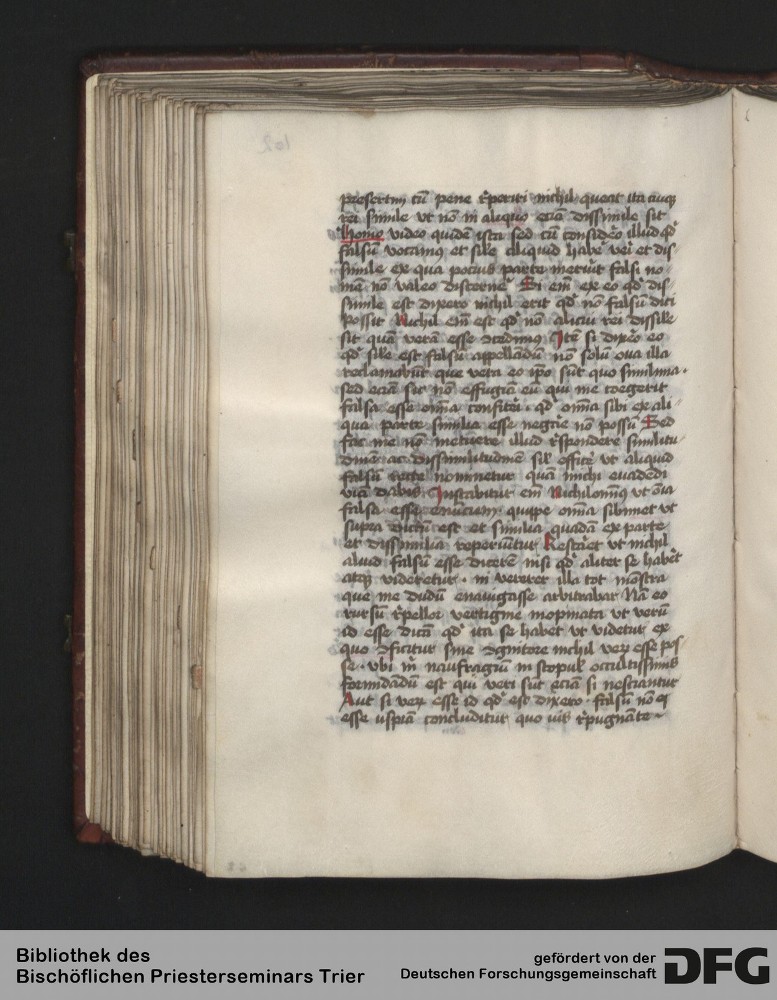 presertim cũ pene r̃periri nichil queat ita cuiꝙ
rei simile ut nõ in aliquo eciã dissimile sit
homo video quidẽ ista sed cũ considero illud qd̕
falsũ vocamꝰ et sile aliquid habẽ veri et dis
simile ex qua potius parte meruit falsi no
mẽ nõ valeo discerneꝰ Si em̃ ex eo qd̕ dis-
simile est dixero nichil erit qd̕ nõ falsũ dici
possit Nichil em̃ est qd̕ nõ alicui rei dissile
sit quã verã esse ꝯcedimꝰ Itẽ si dixero eo
qd̕ sile est falsũ appellandũ nõ solũ oua illa
reclamabũt que vera eo ip̃o sũt quo simillima.
sed eciã sic nõ effugiã eũ qui me coegerit
falsa esse om̃ia confiteri. qd̕ om̃ia sibi ex ali-
qua parte similia esse negare nõ possũ Sed
fac me nõ metuere illud r̃spondere similitu-
dinem ac dissimilitudinẽ sil̕ officẽ ut aliquid
falsũ recte nominetur quã michi euadẽdi
viã dabis Instabitur em̃ Nichilominꝰ ut oĩa
falsa esse renunciem quippe om̃ia sibimet ut
supra dictũ est et similia quadã ex parte
et dissimilia reperiũtur Restaret ut nichil
aliud falsũ esse dicerẽ nisi qd̕ aliter se habẽt
atꝙ videretur. ni vererer illa tot mõstra
que me dudũ enauigasse arbitrabar Nã eo
rursũ r̃pellor vertigine inopinata ut verũ
id esse dicã qd̕ ita se habet ut videtur ex
quo ꝯficitur sine ꝯgnitore nichil verũ esse pos-
se. vbi m̃ naufragiũ in scopul̕ occultissimis
formidãdũ est qui veri sũt eciã si nesciantur
Aut si verũ esse id qd̕ est dixero. falsũ nõ eẽ
esse uspiã concluditur quo uis r̃pugnãte.
102
Bibliothek des
Bischöflichen Priesterseminars Trier
gefördert von der
Deutschen Forschungsgemeinschaft
DFG